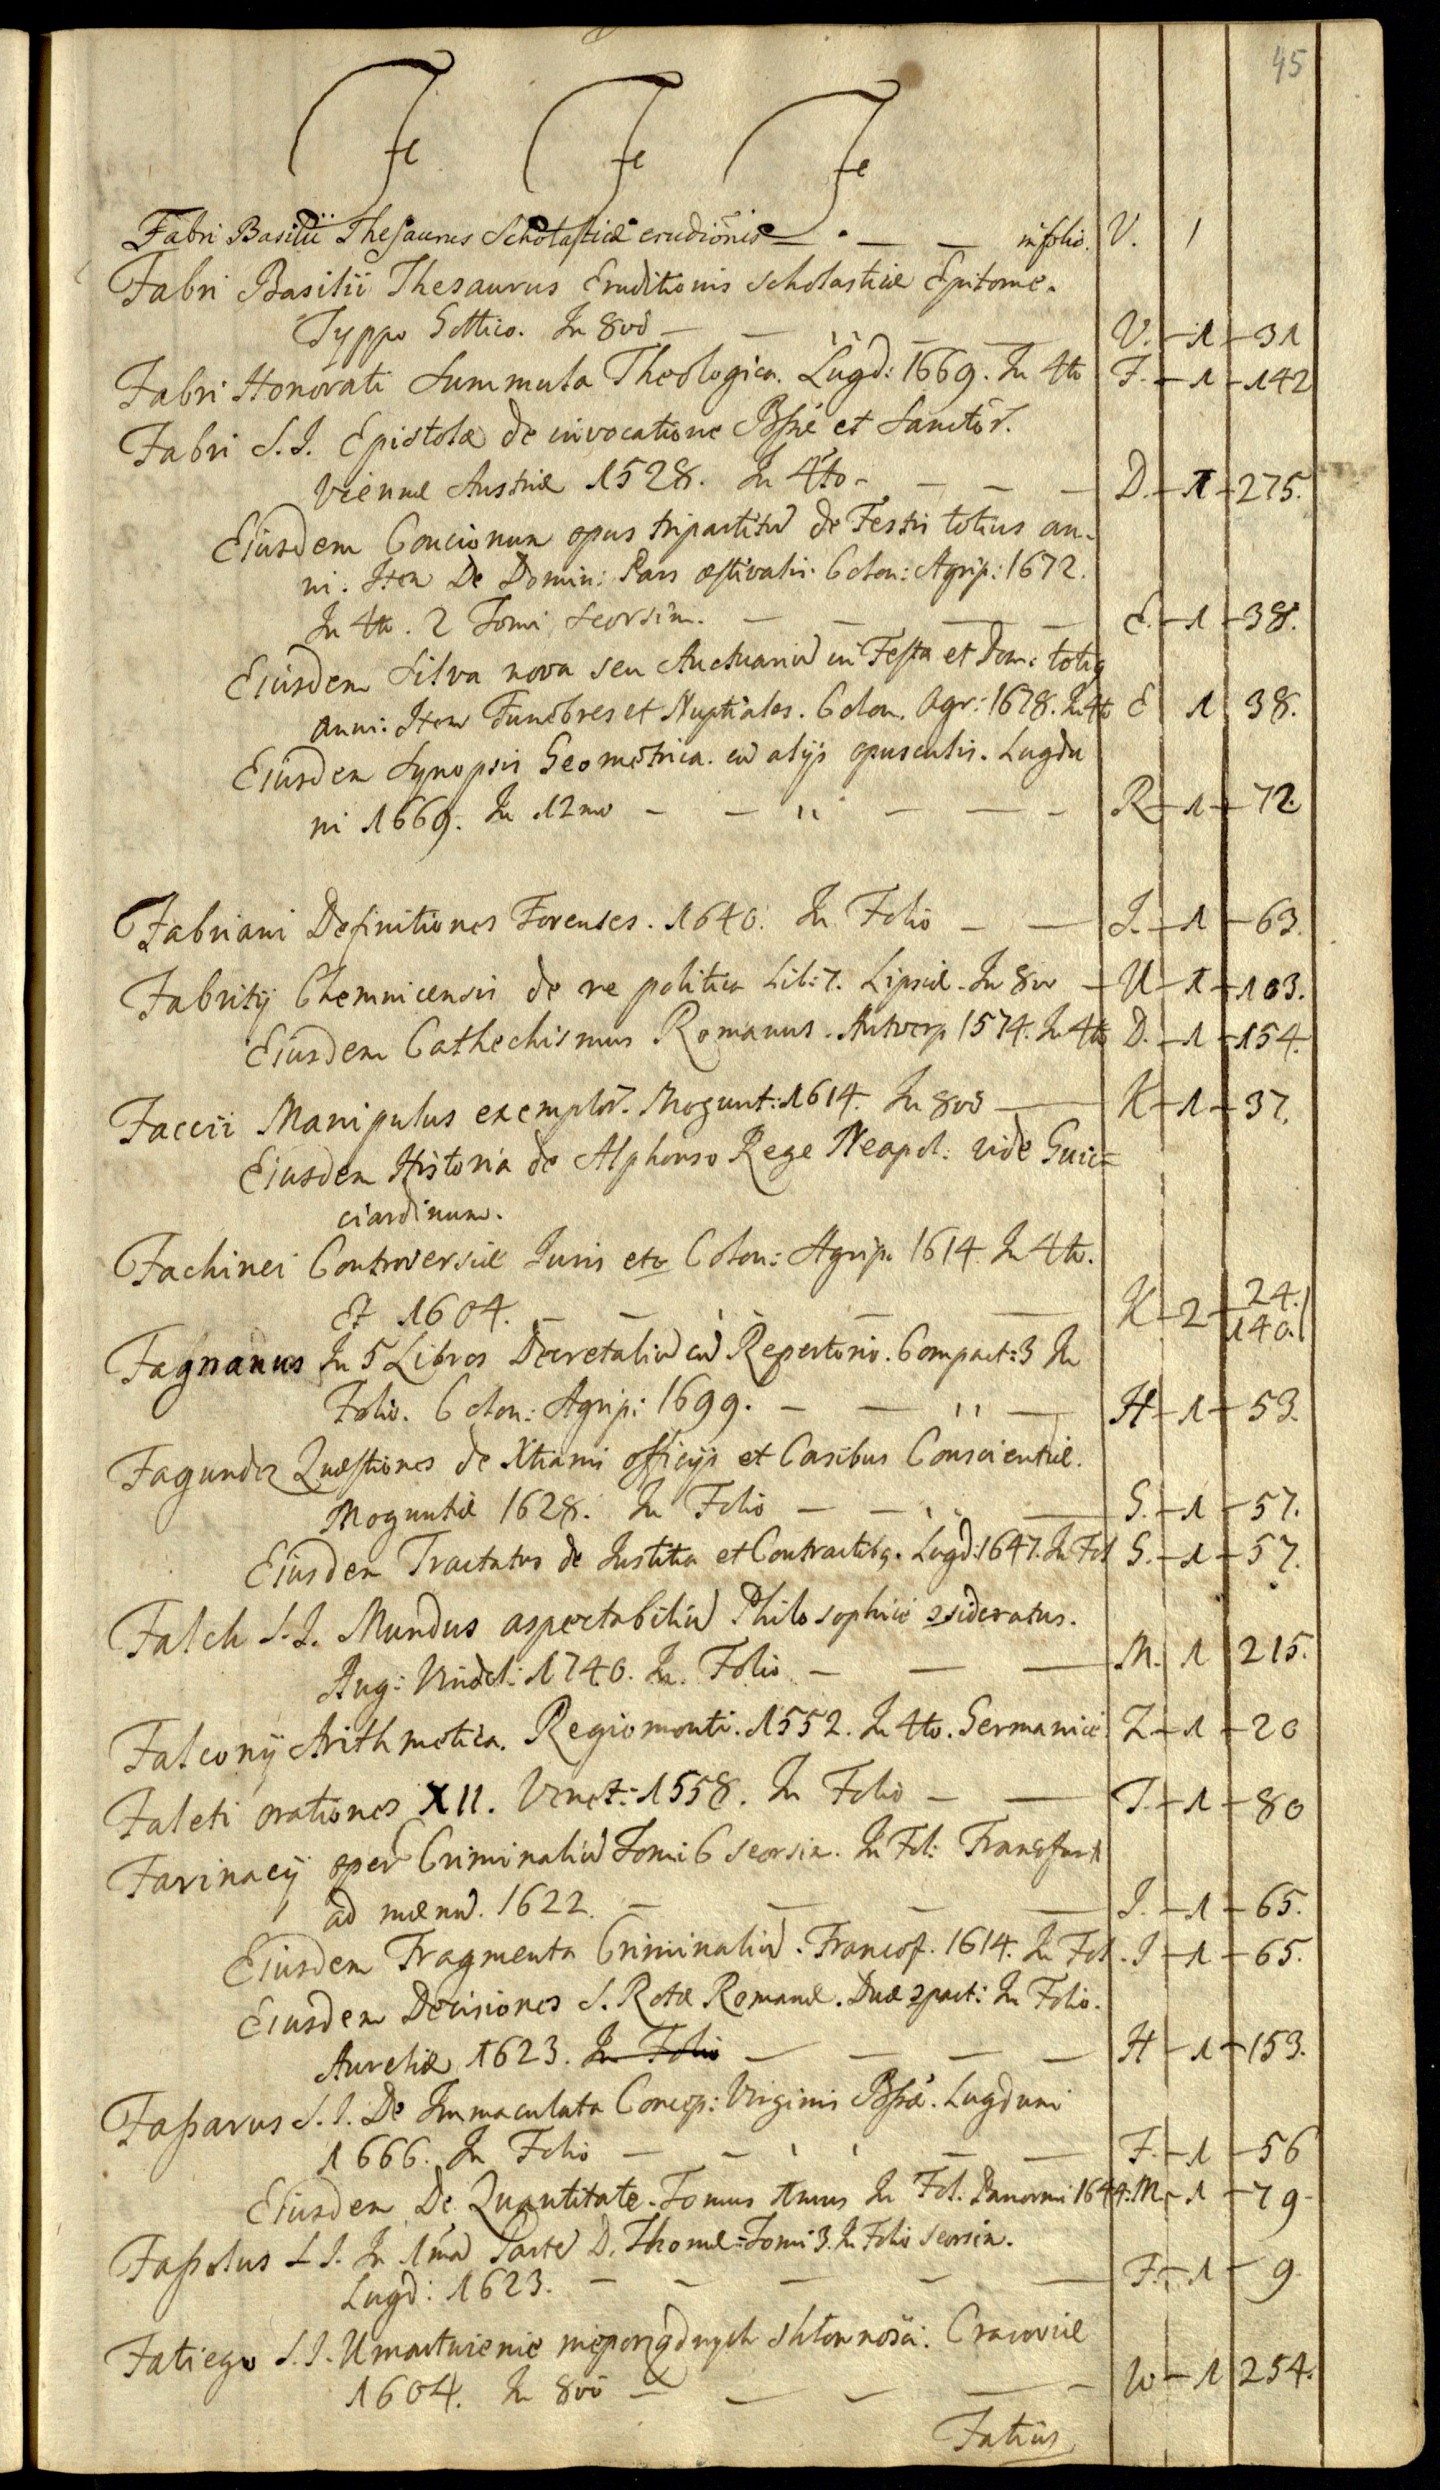 45
F F F
Fabri Basilii Thesaurus Scholasticae erudiõnis — — — in folio. V. 1
Fabri Basilii Thesaurus Eruditionis scholasticæ Epitome.
Typpo Gottico. In 8vo — — V. — 1 — 31
Fabri Honorati Summula Theologica. Lugd: 1669. In 4to F. — 1 — 142
Fabri S.J. Epistolæ de invocatione Bssæ et Sanctor.
Viennæ Austriæ 1528. In 4to — — — — D. — 1 — 275.
Eiusdem Concionum opus tripartitũ de Festis totius an-
ni. Item De Domin: Pars æstivalis. Colon: Agrip: 1672.
In 4to. 2 Tomi seorsim. — — — — E. — 1 — 38.
Eiusdem Silva nova seu Auctuariũ in Festa et Dom: totiq
anni: Item Funebres et Nuptiales. Colon. Agr: 1678. In 4to E 1 38.
Eiusdem Synopsis Geometrica. cũ alijs opusculis. Lugdu
ni 1669. In 12mo — — " — — — R — 1 — 72.
Fabriani Definitiones Forenses. 1640. In Folio — — I. — 1 — 63.
Fabritij Chemnicensis de re politica Lib: 7. Lipsiæ. In 8vo — U — 1 — 103.
Eiusdem Cathechismus Romanus. Antverp 1574. In 4to D. — 1 — 154.
Faccii Manipulus exemplor. Mogunt: 1614. In 8vo — K — 1 — 37.
Eiusdem Historia de Alphonso Rege Neapol: vide Guic=
ciardinum.
Fachinei Controversiæ Juris etc Colon: Agrip. 1614 In 4to.
Et 1604. — — — — K — 2 — 24. 140.
Fagnanus In 5 Libros Decretaliũ cũ Repertorio. Compact: 3 In
Folio. Colon: Agrip: 1699. — — " — H — 1 — 53.
Fagundez Quæstiones de Xtiani officijs et Casibus Conscientiæ.
Moguntiæ 1628. In Folio — — — G. — 1 — 57.
Eiusdem Tractatus de Justitia et Contractibq. Lugd: 1647. In Fol G. — 1 — 57.
Falch S.J. Mundus aspectabiliũ Philosophicè ɔsideratus.
Aug: Vindel: 1740. In. Folio — — — M. 1 215.
Falconÿ Arithmetica. Regiomonti. 1552. In 4to. Germanicè. Z. — 1 — 20
Faleti orationes XII. Venet: 1558. In Folio — — T. — 1 — 80
Farinacÿ oper Criminaliũ Tomi 6 seorsim. In Fol: Francfurti
ad mænũ. 1622. — — — — I. — 1 — 65.
Eiusdem Fragmenta Criminaliũ. Francof. 1614. In Fol. I — 1 — 65.
Eiusdem Decisiones S. Rotæ Romanæ. Duæ ɔpact: In Folio.
Aureliæ 1623. In Folio — — — — H — 1 — 153.
Faßarus S.J. De Immaculata Concep: Virginis Bssæ. Lugduni
1666. In Folio — — — — F. — 1 — 56
Eiusdem De Quantitate. Tomus 1mus In Fol. Panormi 1644. M. — 1 — 79.
Faßolus S J. In 1mã Partẽ D. Thomæ Tomi 3. In Folio seorsim.
Lugd: 1623. — — — — — F. — 1 — 9.
Fatiego S.J. Umartwienie nieporządnych skłonności. Cracoviæ
1604. In 8vo — — — — — W — 1 254.
Fatius